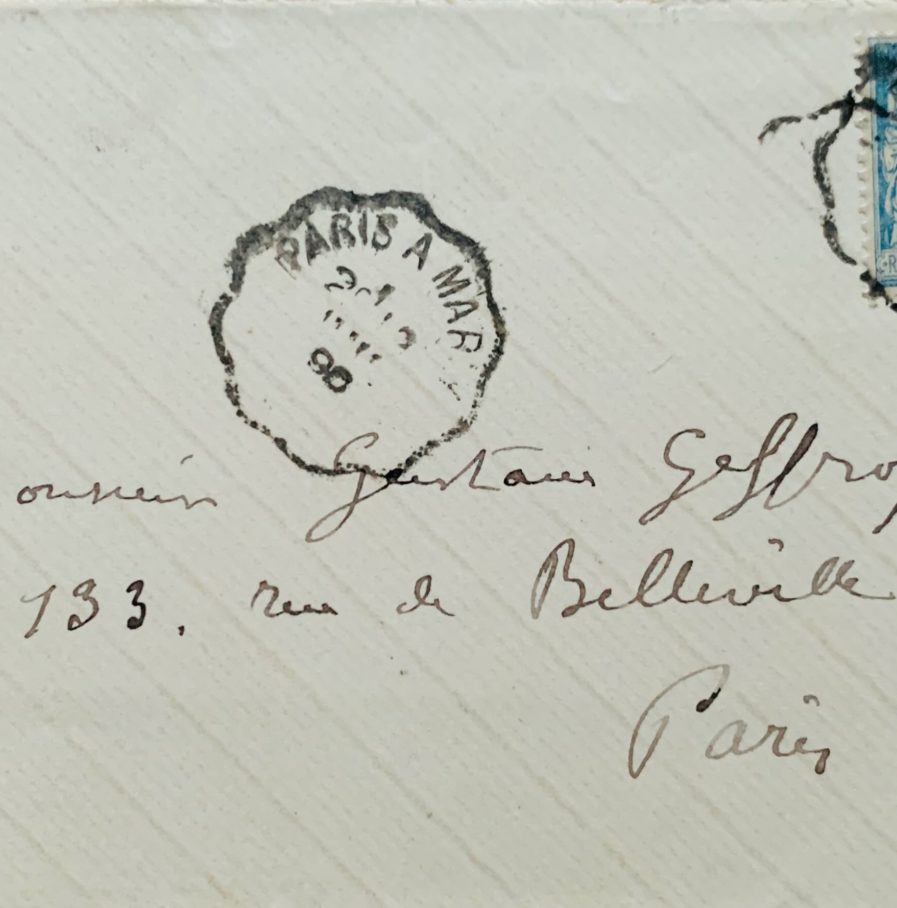 PARIS A MAR
90
onsieur Gustave Geffroy
133. rue de Belleville
Paris